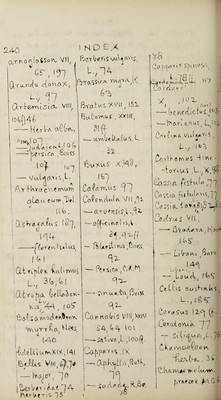 240
INDEX
arnoglosson VII,
65, 197
Arundo donax,
L, 97
Artemisia VIII,
106ff
— Herba alba,
107
— judaica L, 106
— persica Boiss
107
— vulgaris L.
Arthrocnemum
glaucum Del
116.
Astragalus 187,
194
— florentulus,
161
Atriplex halimus
L, 36, 61
Atropa belladon-
na, 44, 105
Balsamodendron
myrrha, Nees,
140
bdellium XIX, 141
Bellis VIII, 67, 70
— major, 70
Berberidae 74
Berberis 73
Berberis vulgaris,
L, 74
Brassica nigra, K.
63
Bratus XVII, 132
Butomus, XXIII,
31ff
— umbellatus, L
22.
Buxus X, 48,
167
Calamus 97
Calendula VII, 92
— arvensis, L, 92
— officinalis,
L, 92, ff
— Palaestina, Boiss,
92
— Persica, C.A.M.
92
— sinuata, Boiss
92
Cannabis VIII, XIV
5A, 64 101
— sativa, L, 100ff
Capparis, IX
— Aphylla, Roth,
79
— sodada, R.Br,
78
Capparis Spinosa,
L, 78, ff
X
— benedictus, 103
— Marianus, L, 102
Carlina vulgaris,
L, 103
Carthamus tinc-
torius L, X,
Cassia fistula, 77
Cassia fistularis, 77
Cedrus VII,
165
— Libani, Barr,
149
— Loud, 165
Celtis australis,
L, 185
Cerasus 129
Ceratonia 77
— siliqua, L, 76
Chamaeleon
herba, 36
Chamaemelum